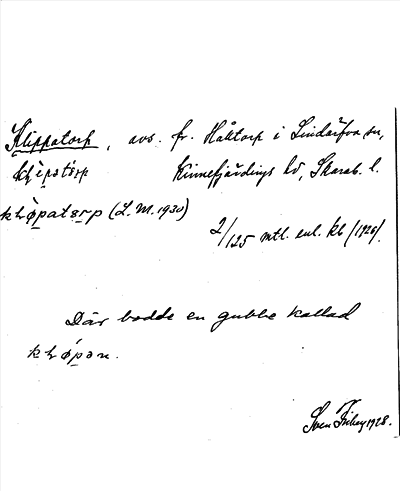 Klippatorp, avs. fr. Håktorp i Lindärfva sn,
Kinnefjärdings hd, Skarab. l.
(L. M. 1930)
2/125 mtl. enl. kb (1926).
Där bodde en gubbe kallad
Sven Friberg 1928.